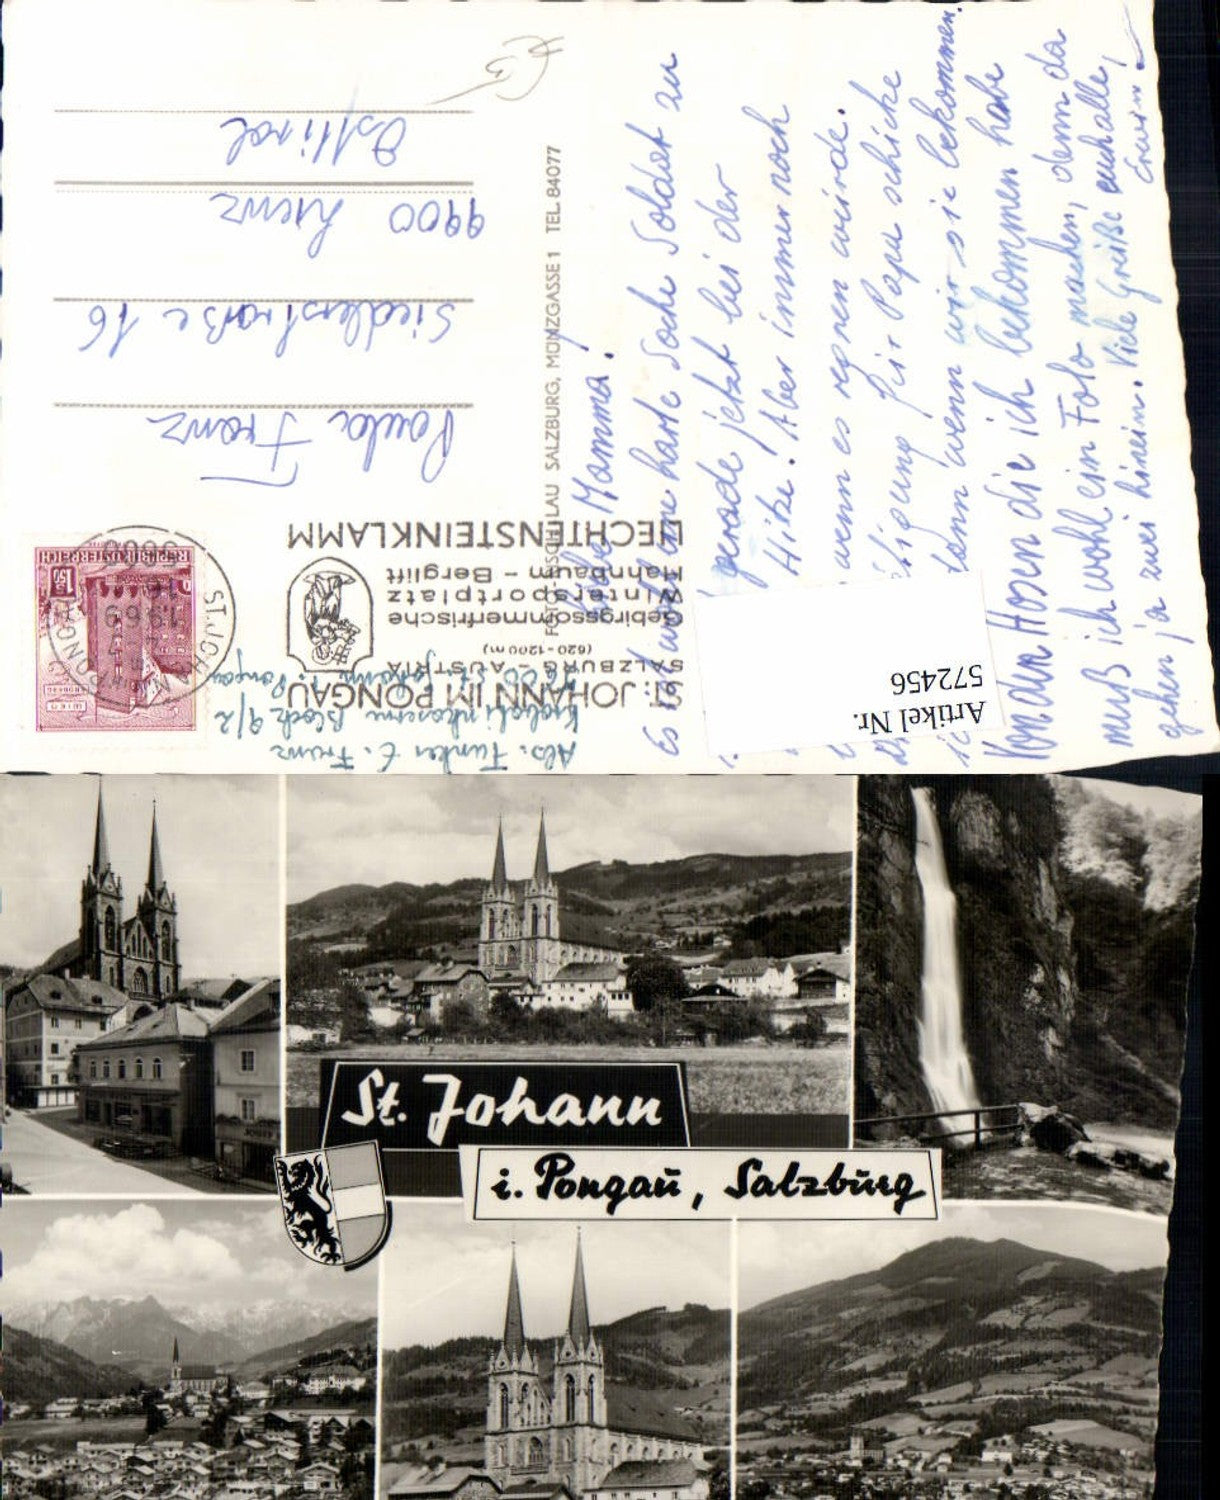 Paula Franz
Siedlerstraße 16
9900 Lienz
Osttirol
REPUBLIK ÖSTERREICH
1.50
ST. JOHANN IM PONGAU
5600
ST. JOHANN IM PONGAU
SALZBURG - AUSTRIA
(620-1200m)
Gebirgssommerfrische
Wintersportplatz
Hahnbaum - Berglift
LIECHTENSTEINKLAMM
Abs. Funker E. Franz
Block 9/2
5600 St. Johann i. Pongau
SALZBURG, MÜNZGASSE 1 TEL. 84077
Liebe Mamma!
Es ist eine harte Sache Soldat zu
gerade jetzt bei der
Hitze. Aber immer noch
wenn es regnen würde.
für Papa schicke
dann wenn wir sie bekommen.
Von den Hosen die ich bekommen habe
muß ich wohl ein Foto machen, denn da
gehen ja zwei hinein. Viele Grüße euch alle,
Erwin
Artikel Nr.
572456
St. Johann
i. Pongau, Salzburg